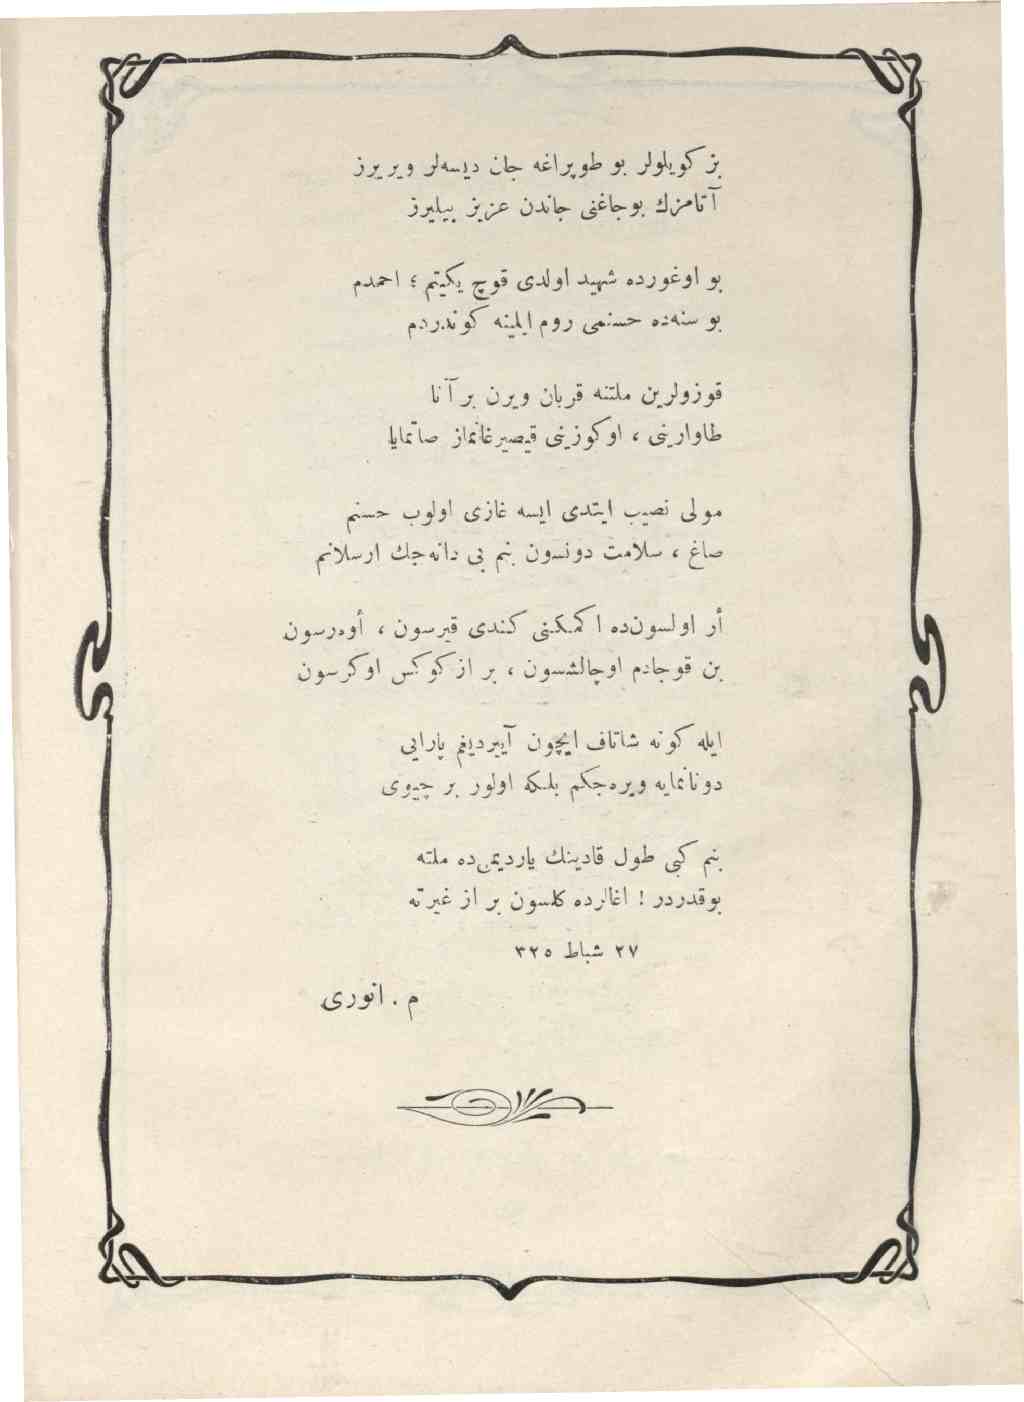 بز کویلولر بو طوپراغه جان دیسه‌لر ویریرز
آتامزك بوجاغنی جاندن عزیز بیلیرز
بو اوغورده شهید اولدی قوچ یکیتم ؛ احمدم
بو سنه‌ده حسنمی روم ایلینه کوندردم
قوزولرین ملتنه قربان ویرن بر آنا
طاوارینی ، اوکوزینی قیصیرغانماز صاتمایا
مولی نصیب ایتدی ایسه غازی اولوب حسنم
صاغ ، سلامت دونسون بنم بی دانه‌جك ارسلانم
أر اولسون‌ده اکمکینی کندی قیرسون ، أوه‌رسون
بن قوجادم اوچالشسون ، بر از کوکس اوکرسون
ایله کونه شاتاف ایچون آییردیغم پارایی
دونانمایه ویره‌جکم بلکه اولور بر چیوی
بنم کبی طول قادینك یاردیمی‌ده ملته
بوقدردر ! اغالرده کلسون بر از غیرته
٢٧ شباط ٣٢٥
م . انوری